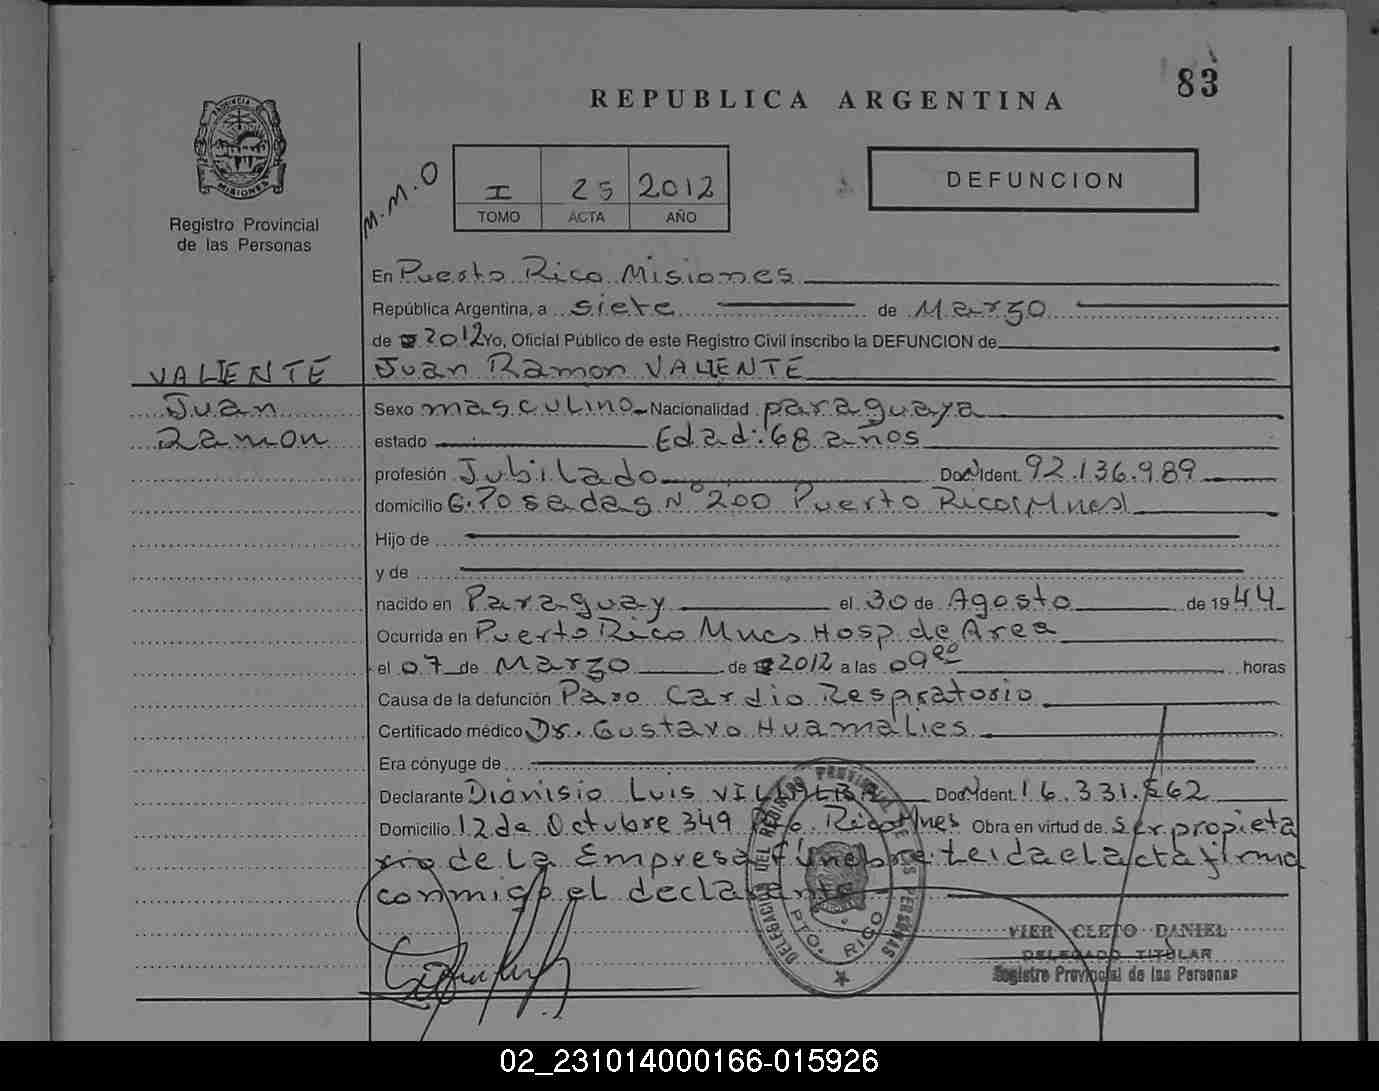 83
REPUBLICA ARGENTINA
PROVINCIA DE
MISIONES
Registro Provincial
de las Personas
M.M.O
I 25 2012
TOMO ACTA AÑO
DEFUNCION
En Puerto Rico Misiones
República Argentina, a siete de Marzo
de 2012 Yo, Oficial Público de este Registro Civil inscribo la DEFUNCION de
VALIENTE
Juan Ramon VALIENTE
Juan
Sexo masculino Nacionalidad paraguaya
Ramon
estado Edad: 68 años
profesión Jubilado Doc. Ident. 92.136.989
domicilio C. Posadas Nº 200 Puerto Rico (Mnes)
Hijo de
y de
nacido en Paraguay el 30 de Agosto de 1944
Ocurrida en Puerto Rico Mnes Hosp. de Area
el 07 de Marzo de 2012 a las 09 00 horas
Causa de la defunción Paro Cardio Respiratorio
Certificado médico Dr. Gustavo Huamalies
Era cónyuge de
Declarante Dionisio Luis VILLALBA Doc. Ident. 16.331.562
Domicilio 12 de Octubre 349 Pto Rico Mnes Obra en virtud de ser propieta
rio de la Empresa Fúnebre. Leida el acta firma
conmigo el declarante
DELEGACION DEL REGISTRO PROVINCIAL DE LAS PERSONAS
PTO. RICO
VIER CLETO DANIEL
DELEGADO TITULAR
Registro Provincial de las Personas
02_231014000166-015926